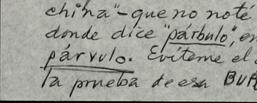 china"-que no noté
donde dice "párbulo", en
párvulo. Evíteme el
la prueba de esa BUR